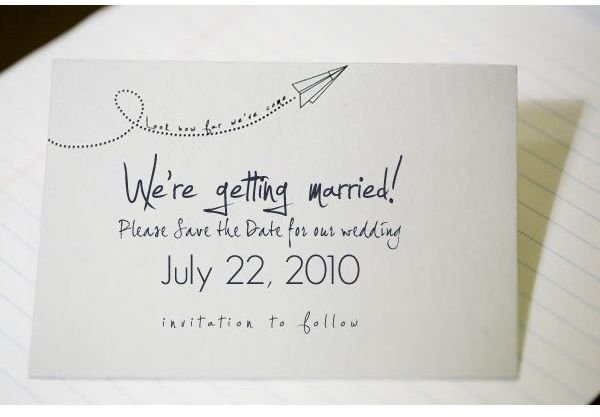 Look how far we've come
We're getting married!
Please Save the Date for our wedding
July 22, 2010
invitation to follow